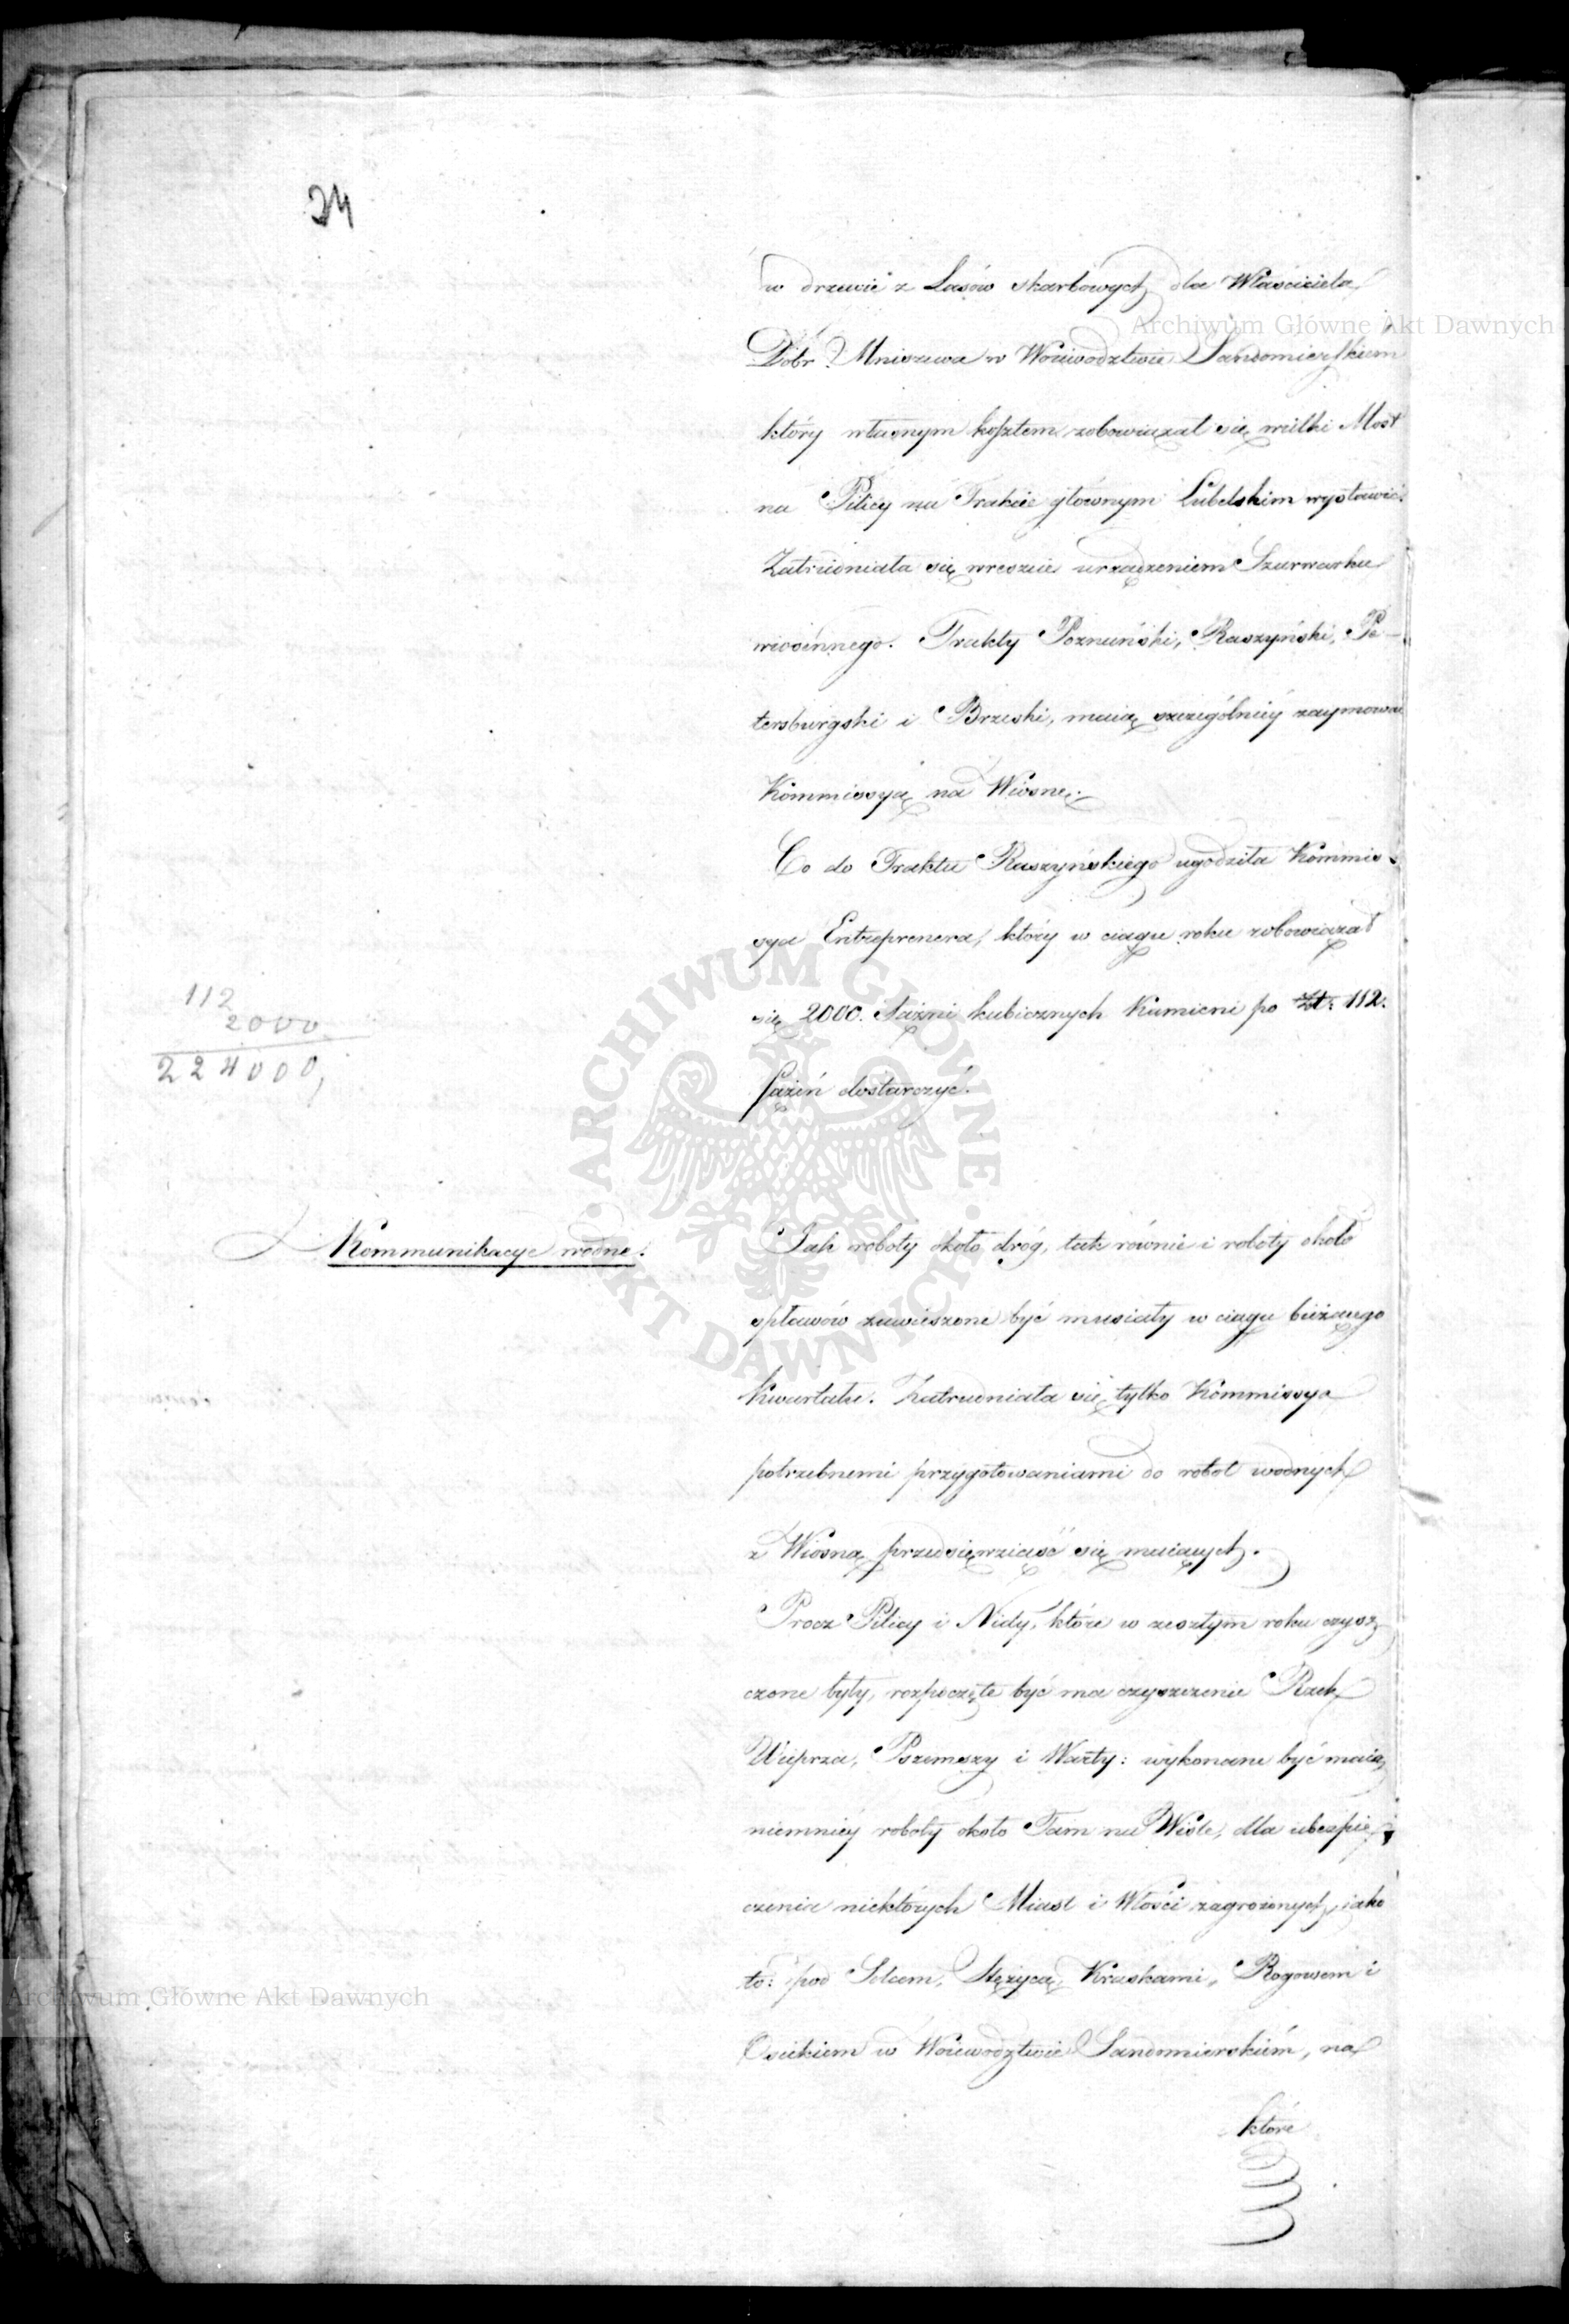 24
w drzewie z Lasów skarbowych dla Właściciela
Dóbr Mniszewa w Woiewodztwie Sandomierskiem
który własnym kosztem zobowiązał się wielki Most
na Pilicy na Trakcie głównym Lubelskim wystawić.
Zatrudniała się wreszcie urządzeniem Szarwarku
wiosennego. Trakty Poznański, Raszyński, Pe-
tersburgski i Brzeski, maią szczególniéy zaymować
Kommissyą na Wiosnę.
Co do Traktu Raszyńskiego ugodziła Kommis-
sya Entreprenera, który w ciągu roku zobowiązał
się 2000. Sążni kubicznych Kamieni po Zł. 112.
sążeń dostarczyć.
112
2000
224000,
Kommunikacye wodne.
Jak roboty około dróg, tak równie i roboty około
spławów zawieszone być musiały w ciągu bieżącego
Kwartału. Zatrudniała się tylko Kommissya
potrzebnemi przygotowaniami do robot wodnych
z Wiosną przedsięwziąść się maiących.
Procz Pilicy i Nidy, które w zeszłym roku czysz
czone były, rozpoczęte być ma czyszczenie Rzek
Wieprza, Przemszy i Warty: wykonane być maią
niemniéy roboty około Tam na Wiśle, dla ubezpie
czenia niektórych Miast i Włości zagrożonych, iako
to: pod Solcem, Stężycą, Kraskami, Rogowem i
Osiekiem w Woiewodztwie Sandomierskiém, na
które
Archiwum Główne Akt Dawnych
ARCHIWUM GŁÓWNE AKT DAWNYCH
Archiwum Główne Akt Dawnych